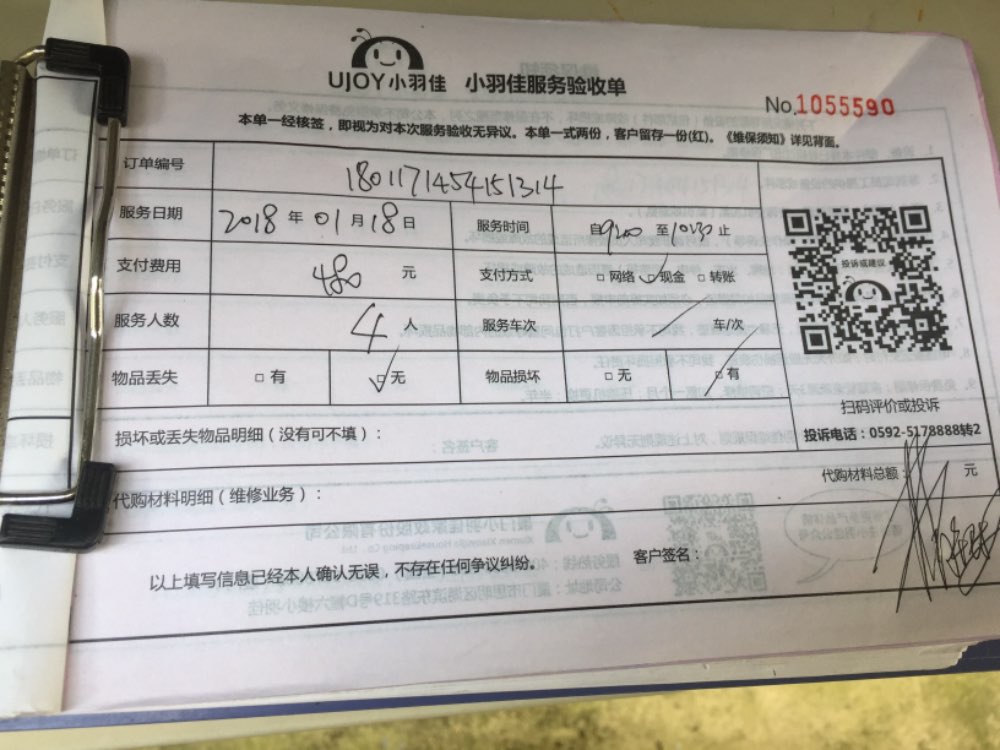 UJOY小羽佳 小羽佳服务验收单
No.1055590
本单一经核签，即视为对本次服务验收无异议。本单一式两份，客户留存一份(红)。《维保须知》详见背面。
订单编号 1801171454151314
服务日期 2018 年 01 月 18 日 服务时间 自9:00 至10:30 止
支付费用 480 元 支付方式 □网络 □现金 □转账
服务人数 4 人 服务车次 车/次
物品丢失 □有 □无 物品损坏 □无 □有
投诉或建议
扫码评价或投诉
投诉电话：0592-5178888转2
损坏或丢失物品明细（没有可不填）：
代购材料明细（维修业务）：
代购材料总额： 元
以上填写信息已经本人确认无误，不存在任何争议纠纷。
客户签名：